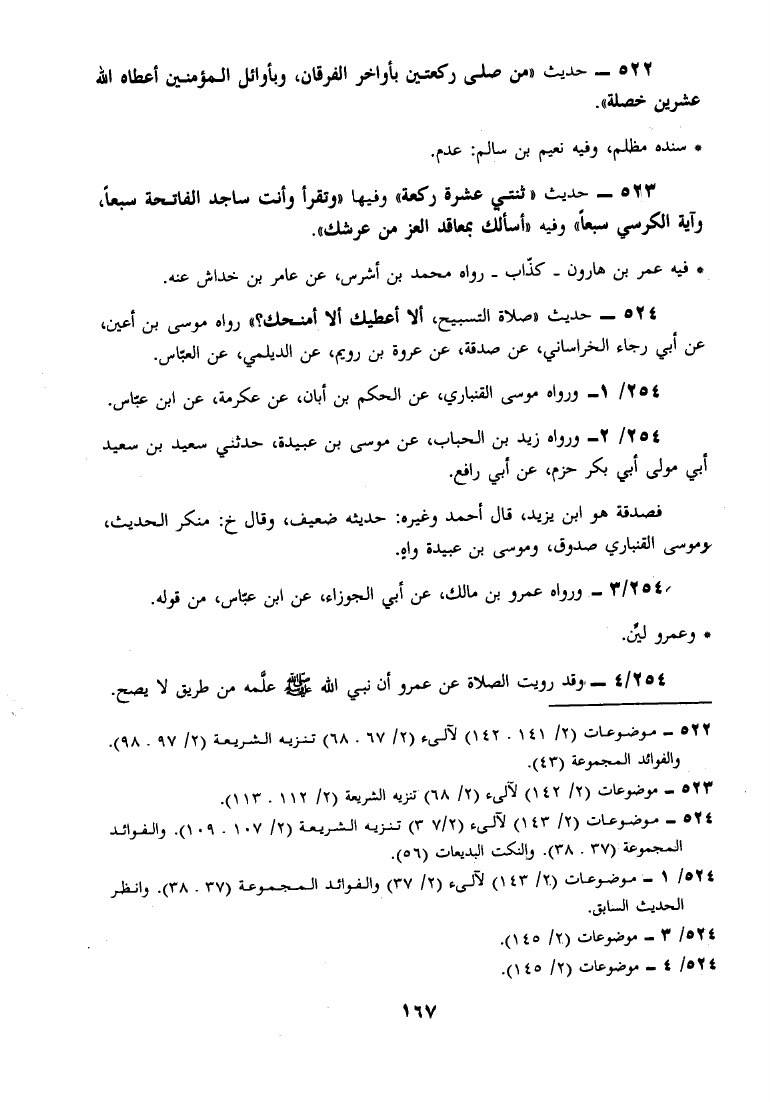 ٥٢٢ ـ حديث «من صلى ركعتين بأواخر الفرقان، وبأوائل المؤمنين أعطاه الله
عشرين خصلة».
* سنده مظلم، وفيه نعيم بن سالم: عدم.
٥٢٣ ـ حديث «ثنتي عشرة ركعة» وفيها «وتقرأ وأنت ساجد الفاتحة سبعاً،
وآية الكرسي سبعاً» وفيه «أسألك بمعاقد العز من عرشك».
* فيه عمر بن هارون ـ كذّاب ـ رواه محمد بن أشرس، عن عامر بن خداش عنه.
٥٢٤ ـ حديث «صلاة التسبيح، ألا أعطيك ألا أمنحك؟» رواه موسى بن أعين،
عن أبي رجاء الخراساني، عن صدقة، عن عروة بن رويم، عن الديلمي، عن العبّاس.
٢٥٤/ ١ـ ورواه موسى القنباري، عن الحكم بن أبان، عن عكرمة، عن ابن عبّاس.
٢٥٤/ ٢ـ ورواه زيد بن الحباب، عن موسى بن عبيدة، حدثني سعيد بن سعيد
أبي مولى أبي بكر حزم، عن أبي رافع.
فصدقة هو ابن يزيد، قال أحمد وغيره: حديثه ضعيف، وقال خ: منكر الحديث،
وموسى القنباري صدوق، وموسى بن عبيدة واهٍ.
٣/٢٥٤ ـ ورواه عمرو بن مالك، عن أبي الجوزاء، عن ابن عبّاس، من قوله.
* وعمرو ليّن.
٤/٢٥٤ ـ وقد رويت الصلاة عن عمرو أن نبي الله ﷺ علّمه من طريق لا يصح.
٥٢٢ ـ موضوعات (٢/ ١٤١ . ١٤٢) لآلىء (٢/ ٦٧ . ٦٨) تنزيه الشريعة (٢/ ٩٧ . ٩٨).
والفوائد المجموعة (٤٣).
٥٢٣ ـ موضوعات (٢/ ١٤٢) لآلىء (٢/ ٦٨) تنزيه الشريعة (٢/ ١١٢ . ١١٣).
٥٢٤ ـ موضوعات (٢/ ١٤٣) لآلىء (٢/٧ ٣) تنزيه الشريعة (٢/ ١٠٧ . ١٠٩). والفوائد
المجموعة (٣٧ . ٣٨). والنكت البديعات (٥٦).
٥٢٤/ ١ ـ موضوعات (٢/ ١٤٣) لآلىء (٢/ ٣٧) والفوائد المجموعة (٣٧ . ٣٨). وانظر
الحديث السابق.
٥٢٤/ ٣ ـ موضوعات (٢/ ١٤٥).
٥٢٤/ ٤ ـ موضوعات (٢/ ١٤٥).
١٦٧